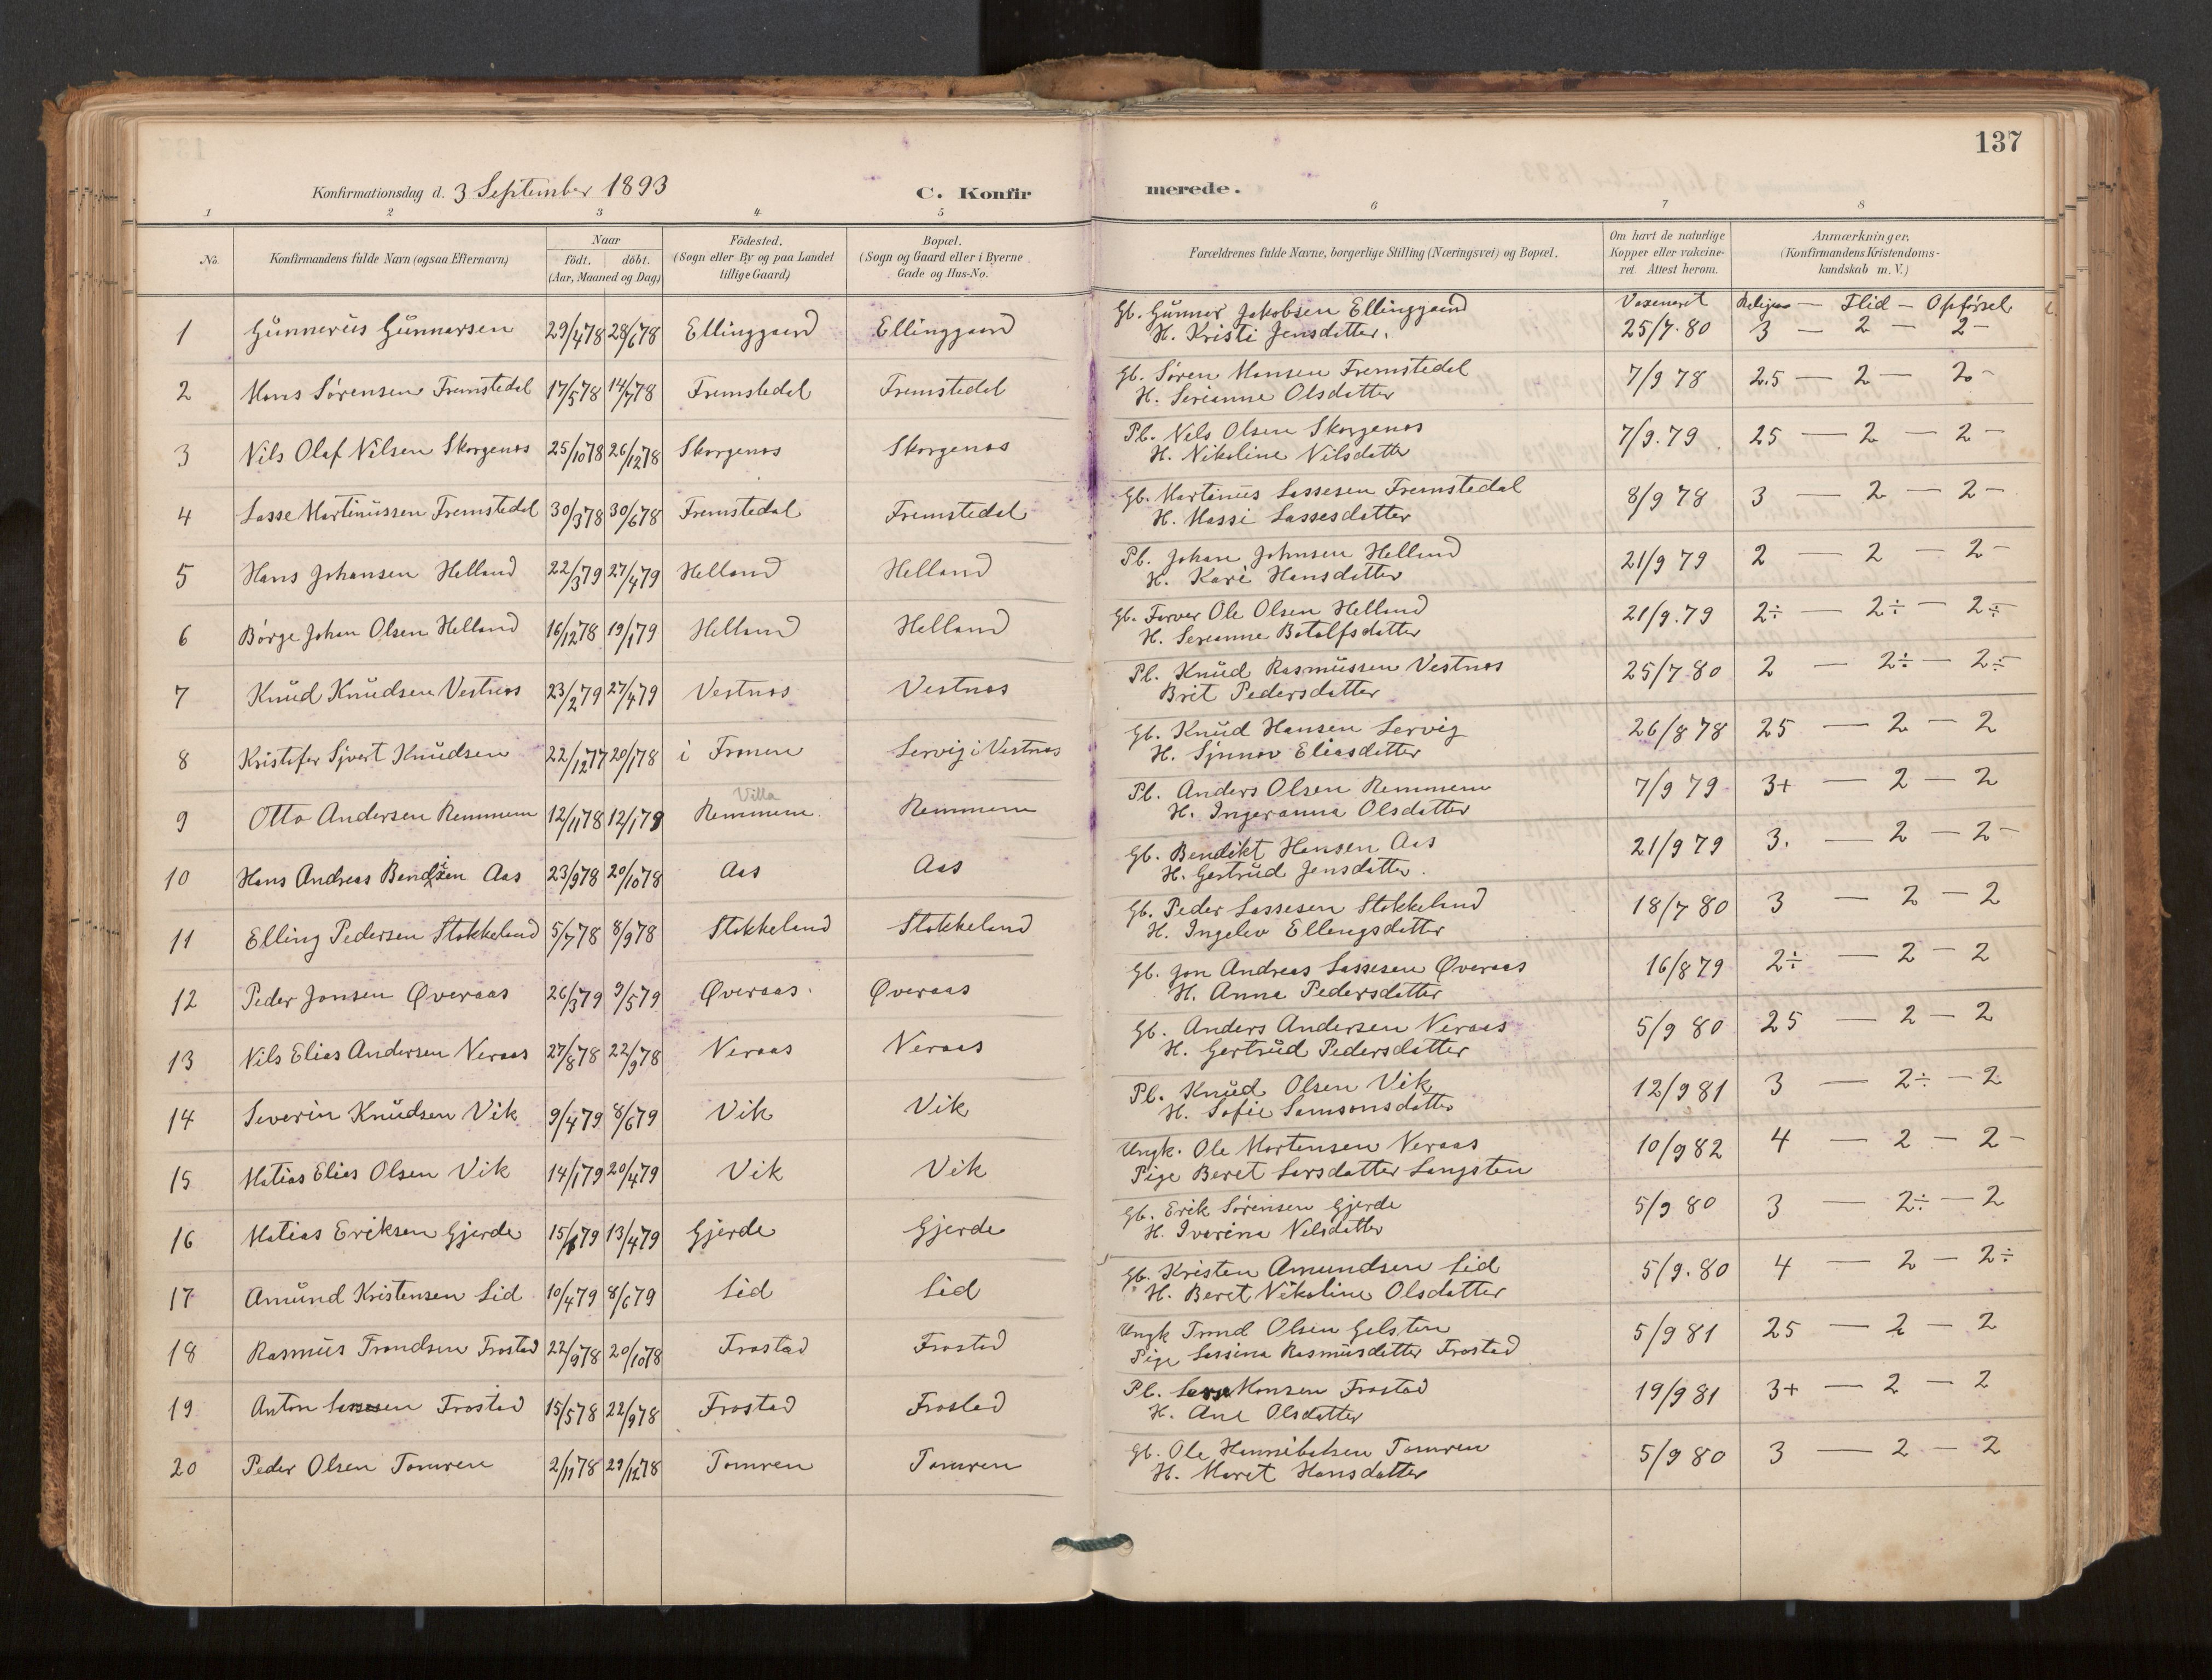 137
Konfirmationsdag d. 3 September 1893 C. Konfir merede.
1 2 3 4 5 6 7 8
No. Konfirmandens fulde Navn (ogsaa Efternavn) Naar født. døbt. (Aar, Maaned og Dag) Födested. (Sogn eller By og paa Landet tillige Gaard) Bopæl. (Sogn og Gaard eller i Byerne Gade og Hus-No. Forældrenes fulde Navne, borgerlige Stilling (Næringsvei) og Bopæl. Om havt de naturlige Kopper eller vakcineret. Attest herom. Anmærkninger, (Konfirmandens Kristendomskundskab m. V.)
Gb. Gunnar Jakobsen Ellinggaard Vaxeneret Religion — Flid — Opførsel
1 Gunnerius Gunnarsen 29/4 78 28/6 78 Ellinggaard Ellinggaard H. Kristi Jensdatter. 25/7.80 3 — 2 — 2 –
2 Hans Sørensen Fremstedal 17/5 78 14/7 78 Fremstedal Fremstedal Gb. Søren Hansen Fremstedal 7/9 78 2.5 — 2 — 2 –
H. Serianne Olsdatter
3 Nils Olaf Nilsen Skorgenos 25/10 78 26/12 78 Skorgenos Skorgenos Pl. Nels Olsen Skorgenos 7/9.79 25 — 2 — 2 –
H. Nikoline Nilsdatter
4 Lasse Martinussen Fremstedal 30/3 78 30/6 78 Fremstedal Fremstedal Gb. Martinus Lassesen Fremstedal 8/9 78 3 — 2 — 2 –
H. Massi Lassesdatter
5 Hans Johansen Helland 22/3 79 27/4 79 Helland Helland Pl. Johan Johnsen Helland 21/9 79 2 — 2 — 2 –
H. Kari Hansdatter
6 Børge Johan Olsen Helland 16/12 78 19/1 79 Helland Helland Gb. Farver Ole Olsen Helland 21/9.79 2÷ — 2÷ — 2÷
H. Serianne Botolfsdatter
7 Knud Knudsen Vestnes 23/2 79 27/4 79 Vestnos Vestnos Pl. Knud Rasmussen Vestnos 25/7 80 2 — 2÷ — 2÷
Brit Pedersdatter
8 Kristofer Sjvert Knudsen 22/12 77 20/1 78 i Fronen Lervig i Vestnes Gb. Knud Hansen Lervig 26/8 78 25 — 2 — 2
H. Synnøv Eliasdatter
Villa
9 Otto Andersen Remmem 12/11 78 12/1 79 Remmem Remmem Pl. Anders Olsen Remmem 7/9 79 3+ — 2 — 2
H. Ingeranna Olsdatter
10 Hans Andreas Bendixen Aas 23/9 78 20/10 78 Aas Aas Gb. Bendikt Hansen Aas 21/9 79 3. — 2 — 2 –
H. Gertrud Jensdatter.
11 Elling Pedersen Stokkeland 5/7 78 8/9 78 Stokkeland Stokkeland Gb. Peder Lassesen Stokkeland 18/7 80 3 — 2 — 2
H. Ingelev Ellengsdatter
12 Peder Jonsen Øveraas 26/3 79 9/5 79 Øveraas Øveraas Gb. Jon Andreas Lassesen Øveraas 16/8 79 2÷ — 2 — 2
H. Anna Pedersdatter
13 Nils Elias Andersen Neraas 27/8 78 22/9 78 Neraas Neraas Gb. Anders Andersen Neraas 5/9 80 25 — 2 — 2
H. Gertrud Pedersdatter
14 Severin Knudsen Vik 9/4 79 8/6 79 Vik Vik Pl. Knud Olsen Vik 12/9 81 3 — 2÷ — 2
H. Sofie Samsonsdatter
15 Matias Elias Olsen Vik 14/1 79 20/4 79 Vik Vik Ungk. Ole Mortensen Neraas 10/9 82 4 — 2 — 2 –
Pige Beret Larsdatter Langsten
16 Matias Eriksen Gjerde 15/1 79 13/4 79 Gjerde Gjerde Gb. Erik Sørensen Gjerde 5/9 80 3 — 2÷ — 2
H. Iverina Nelsdatter
17 Amund Kristensen Lid 10/4 79 8/6 79 Lid Lid Gb. Kristen Amundsen Lid 5/9.80 4 — 2 — 2÷
H. Beret Nikoline Olsdatter
18 Rasmus Trondsen Frostad 22/9 78 20/10 78 Frostad Frostad Ungk Trond Olsen Gelsten 5/9 81 25 — 2 — 2
Pige Lassina Rasmusdatter Frostad
19 Anton Lassesen Frostad 15/5 78 22/9 78 Frostad Frostad Pl. Lasse Monsen Frostad 19/9 81 3+ — 2 — 2
H. Ane Olsdatter
20 Peder Olsen Tomren 2/11 78 29/12 78 Tomren Tomren Gb. Ole Hannibalsen Tomren 5/9 80 3 — 2 — 2
H. Marit Hansdatter